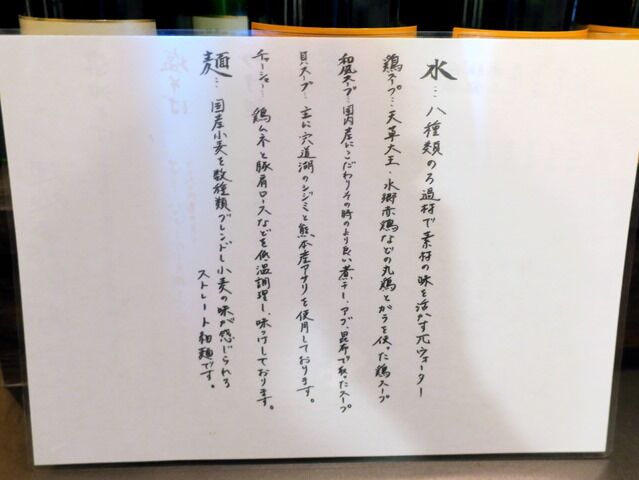 水…八種類のろ過材で素材の味を活かすπウォーター
鶏スープ…天草大王・水郷赤鶏などの丸鶏とガラを使った鶏スープ
和風スープ…国内産にこだわりその時のより良い煮干し、アゴ、昆布で取ったスープ
貝スープ…主に宍道湖のシジミと熊本産アサリを使用しております。
チャーシュー…鶏ムネと豚肩ロースなどを低温調理し、味つけしております。
麺…国産小麦を数種類ブレンドし小麦の味が感じられる
ストレート細麺です。